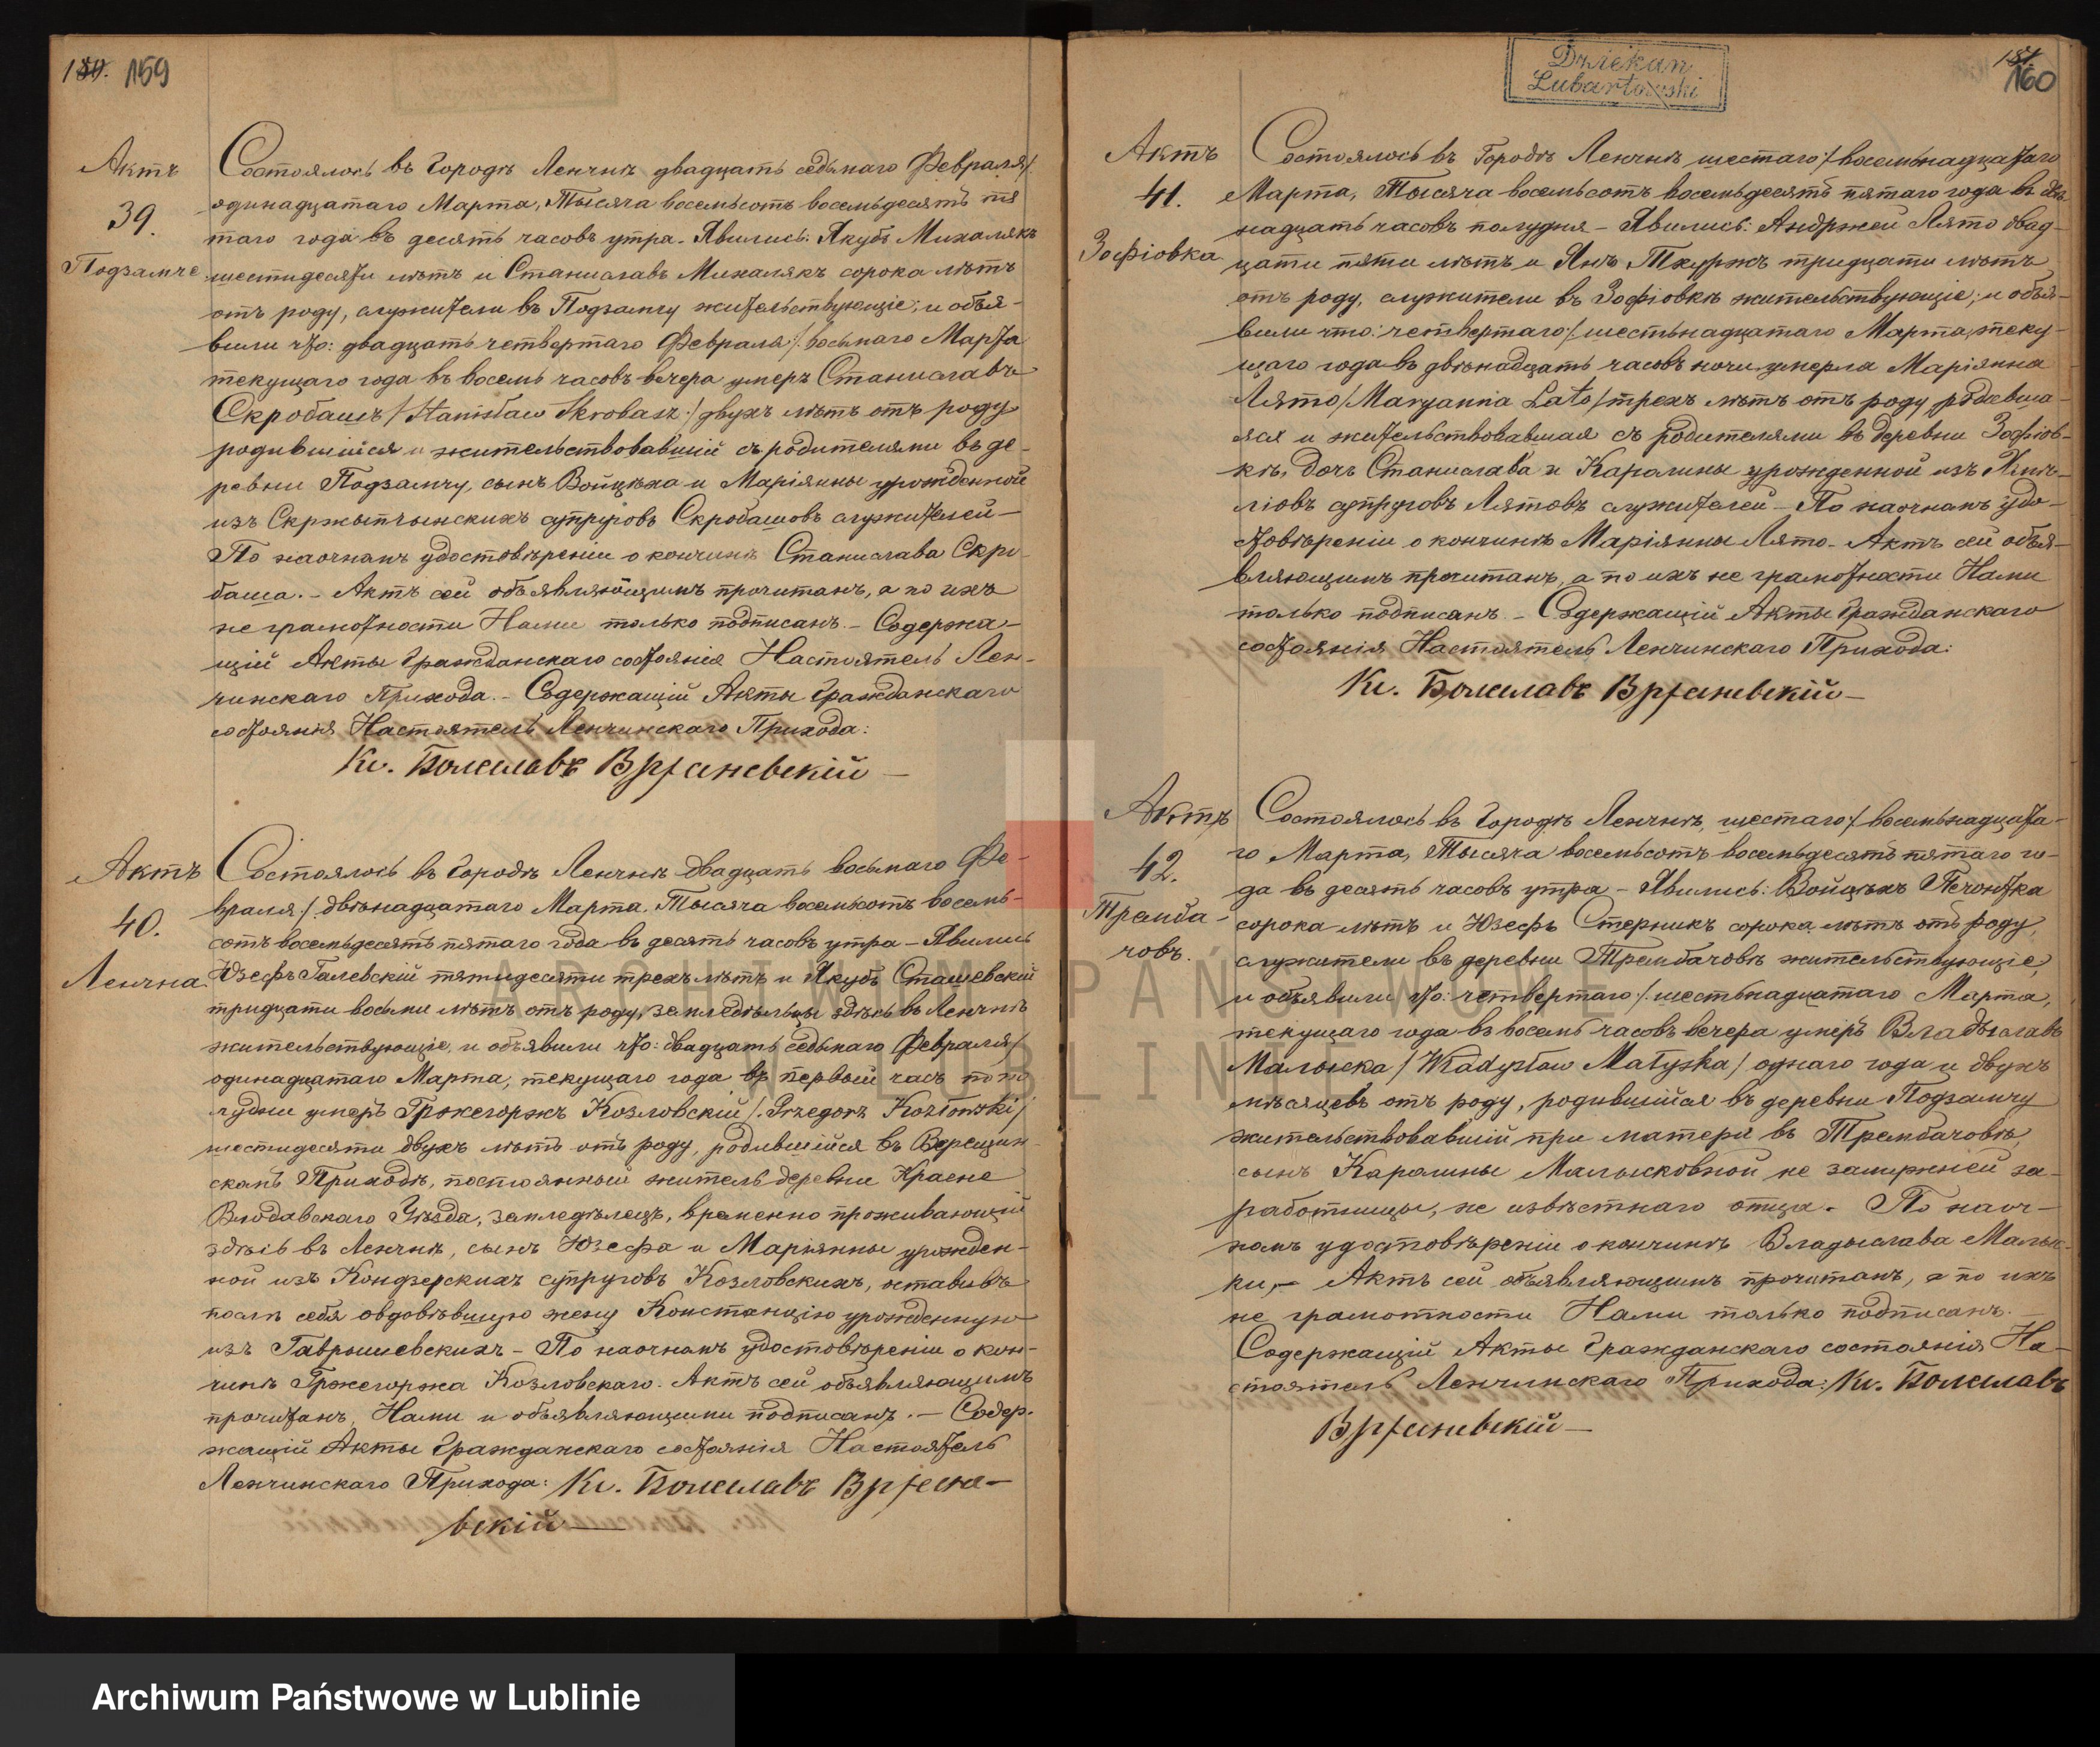 159
Актъ
39.
Подзамче
Состоялось въ Городѣ Ленчнѣ двадцать седьмаго Февраля /
одинадцатаго Марта, Тысяча восемьсотъ восемьдесятъ пя
таго года въ десять часовъ утра. Явились: Якубъ Михалякъ
шестидесяти лѣтъ и Станиславъ Михалякъ сорока лѣтъ
отъ роду, служители въ Подзамчу жительствующіе; и объя-
вили что: двадцать четвертаго Февраля /. восьмаго Марта
текущаго года въ восемь часовъ вечера умеръ Станиславъ
Скробашъ /Stanisław Skrobasz:/ двухъ лѣтъ отъ роду
родившійся и жительствовавшій съ родителями въ де-
ревни Подзамчу, сынъ Войцѣха и Маріянны урожденной
изъ Скржыпчинскихъ супруговъ Скробашовъ служителей –
По наочнамъ удостовѣреніи о кончинѣ Станислава Скро-
баша. – Актъ сей объявляющимъ прочитанъ, а по ихъ
не грамотности Нами только подписанъ. – Содержа-
щій Акты Гражданскаго состоянія Настоятель Лен-
чинскаго Прихода. – Содержащій Акты Гражданскаго
состоянія Настоятель Ленчинскаго Прихода:
Кс. Болеславъ Вржесневскій –
Актъ
40.
Ленчна.
Состоялось въ Городѣ Ленчнѣ двадцать восьмаго Фе-
враля /. двѣнадцатаго Марта. Тысяча восемьсотъ восемь-
сотъ восемьдесятъ пятаго года въ десять часовъ утра – Явились
Юзефъ Галевскій пятидесяти трехъ лѣтъ и Якубъ Сташевскій
тридцати восьми лѣтъ отъ роду, земледѣльцы здѣсь въ Ленчнѣ
жительствующіе, и объявили что: двадцать седьмаго Февраля /
одинадцатаго Марта, текущаго года въ первый часъ попо
лудни умеръ Гржегоржъ Козловскій /. Grzegorz Kozłowski /
шестидесяти двухъ лѣтъ отъ роду, родившійся въ Верещин-
скамъ Приходѣ, постоянный житель деревни Красне
Влодавскаго Уѣзда, земледѣлецъ, временно проживающій
здѣсь въ Ленчнѣ, сынъ Юзефа и Маріянны урожден-
ной изъ Кондзерскихъ супруговъ Козловскихъ, оставивъ
послѣ себя овдовѣвшую жену Констанцію урожденную
изъ Гаврышевскихъ – По наочнамъ удостовѣреніи о кон-
чинѣ Гржегоржа Козловскаго. Актъ сей объявляющимъ
прочитанъ, Нами и объявляющими подписанъ. – Содер-
жащій Акты Гражданскаго состоянія Настоятель
Ленчинскаго Прихода: Кс. Болеславъ Вржесне-
вскій –
Dziekan
Lubartowski
160
Актъ
41.
Зофіовка
Состоялось въ Городѣ Ленчнѣ шестаго /. восемьнадцатаго
Марта, Тысяча восемьсотъ восемьдесятъ пятаго года въ двѣ-
надцать часовъ полудня – Явились: Андржей Лято двад-
цати пяти лѣтъ и Янъ Тхуржъ тридцати лѣтъ
отъ роду, служители въ Зофіовкѣ жительствующіе; и объя-
вили что: четвертаго /. шестьнадцатаго Марта, теку-
щаго года въ двѣнадцать часовъ ночи умерла Маріянна
Лято /Maryanna Lato/ трехъ лѣтъ отъ роду родивша-
яся и жительствовавшая съ родителями въ деревни Зофіов-
кѣ, дочь Станислава и Каралины урожденной изъ
супруговъ Лятовъ служителей – По наочнамъ удо-
стовѣреніи о кончинѣ Маріянны Лято – Актъ сей объя-
вляющимъ прочитанъ, а по ихъ не грамотности Нами
только подписанъ. – Содержащій Акты Гражданскаго
состоянія Настоятель Ленчинскаго Прихода:
Кс. Болеславъ Вржесневскій –
Актъ
42.
Трембачовъ.
Состоялось въ Городѣ Ленчнѣ, шестаго /. восемьнадцата-
го Марта, Тысяча восемьсотъ восемьдесятъ пятаго го-
да въ десять часовъ утра – Явились: Войцѣхъ Печонтка
сорока лѣтъ и Юзефъ Стерникъ сорока лѣтъ отъ роду,
служители въ деревни Трембачовѣ жительствующіе,
и объявили что: четвертаго /. шестьнадцатаго Марта,
текущаго года въ восемь часовъ вечера умеръ Владыславъ
Малыска /Władysław Małyska/ однаго года и двухъ
мѣсяцевъ отъ роду, родившійся въ деревни Подзамчу
жительствовавшій при матери въ Трембачовѣ,
сынъ Каралины Малысковной не замужней за-
работницы, не извѣстнаго отца. – По наоч-
намъ удостовѣреніи о кончинѣ Владыслава Малыс-
ки, – Актъ сей объявляющимъ прочитанъ, а по ихъ
не грамотности Нами только подписанъ. –
Содержащій Акты Гражданскаго состоянія На-
стоятель Ленчинскаго Прихода: Кс. Болеславъ
Вржесневскій –
ARCHIWUM PAŃSTWOWE
W LUBLINIE
Archiwum Państwowe w Lublinie